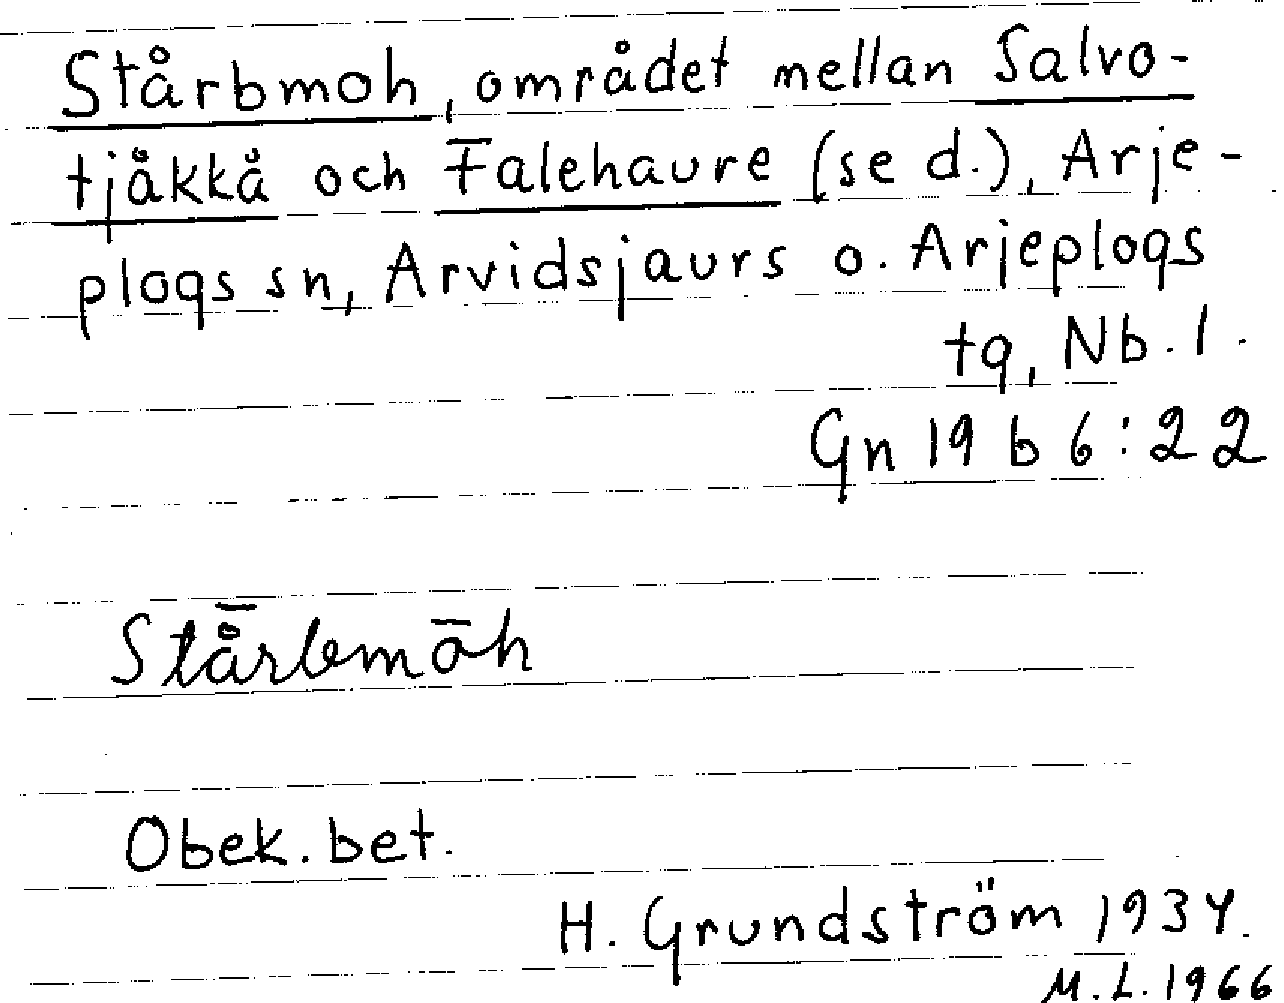 Stårbmoh, området mellan Salvo-
tjåkkå och Falehaure (se d.), Arje-
plogs sn, Arvidsjaurs o. Arjeplogs
tg, Nb. l.
Gn 19 b 6:22
Stå̄rbmōh
Obek. bet.
H. Grundström 1934.
M.L. 1966